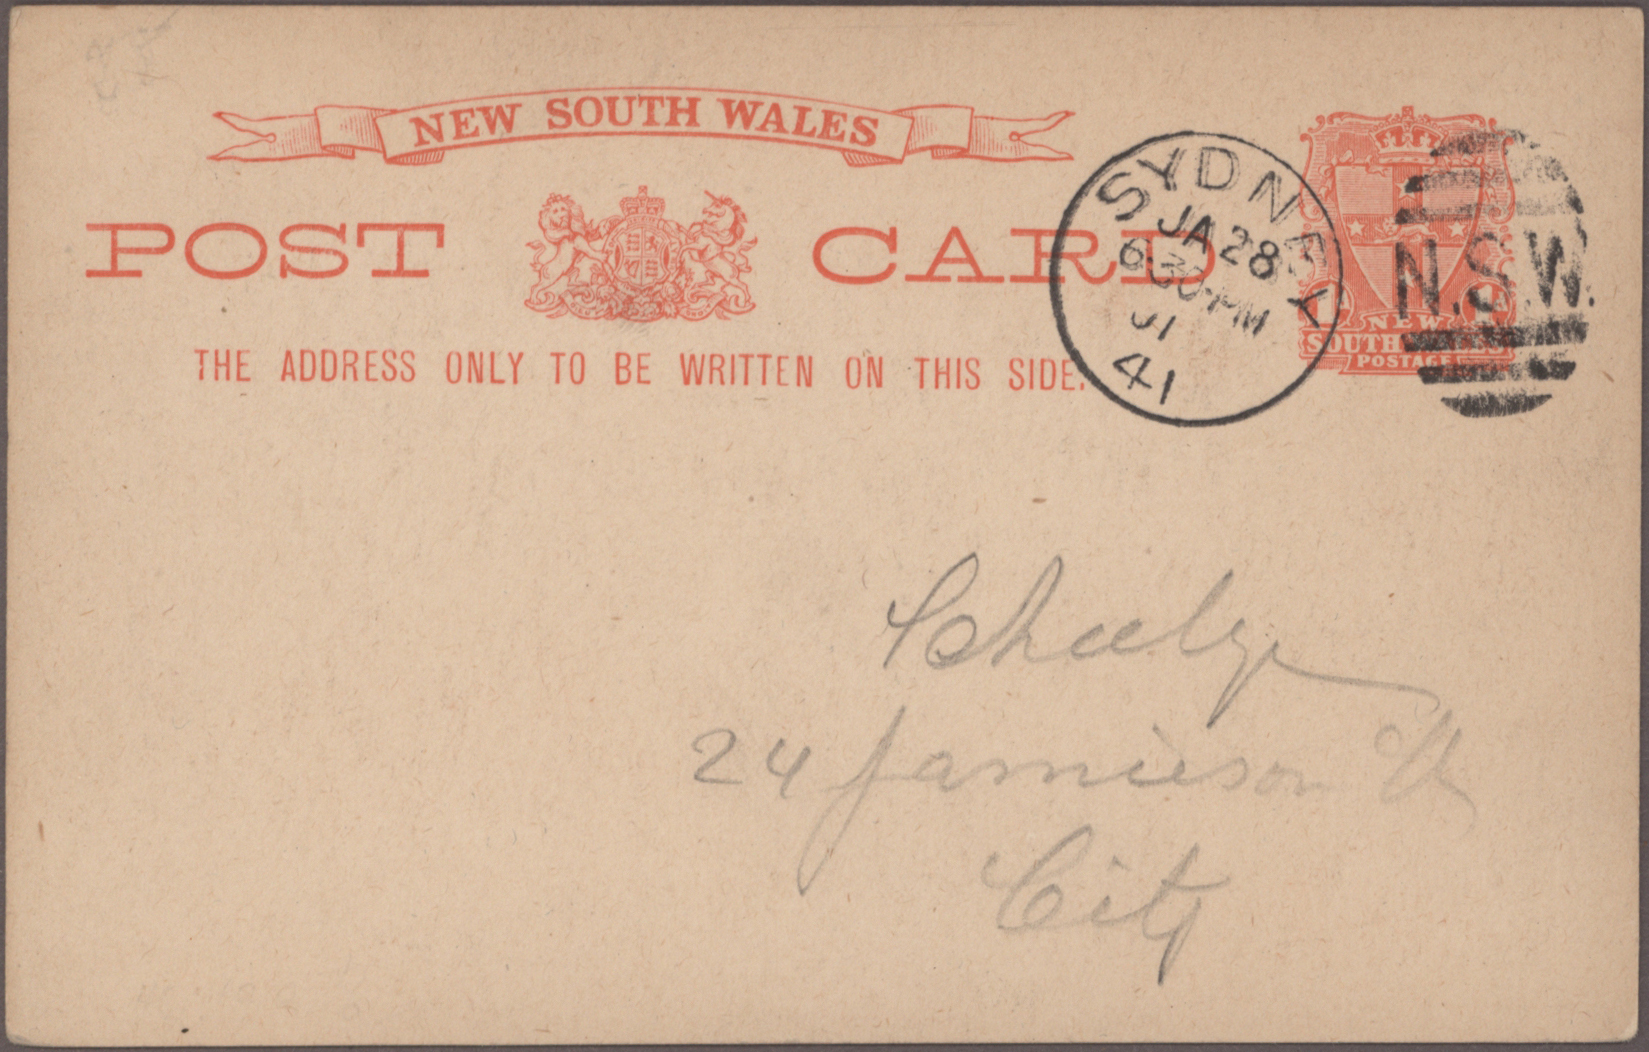 NEW SOUTH WALES
POST CARD
THE ADDRESS ONLY TO BE WRITTEN ON THIS SIDE.
SYDNEY
JA 28
6.30-PM
01
41
N.S.W.
1d 1d
NEW
SOUTH WALES
POSTAGE
24 Jamieson St
City